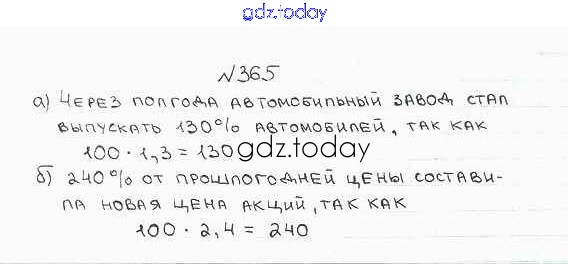 gdz.today
№365
а) Через полгода автомобильный завод стал
выпускать 130% автомобилей, так как
100 · 1,3 = 130
gdz.today
б) 240% от прошлогодней цены состави-
ла новая цена акций, так как
100 · 2,4 = 240